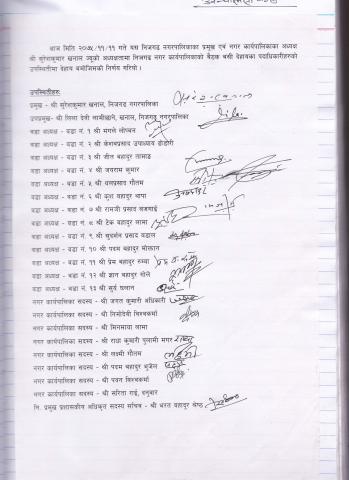 आज मिति २०७५/११/११ गते यस निजगढ नगरपालिकाका प्रमुख एवं नगर कार्यपालिकाका अध्यक्ष
श्री सुरेशकुमार खनाल ज्यूको अध्यक्षतामा निजगढ नगर कार्यपालिकाको बैठक बसी देहायका पदाधिकारीहरुको
उपस्थितीमा देहाय बमोजिमको निर्णय गरियो ।
उपस्थितीहरु:
प्रमुख - श्री सुरेशकुमार खनाल, निजगढ नगरपालिका
उपप्रमुख - श्री लिला देवी लामीछाने, खनाल, निजगढ नगरपालिका
वडा अध्यक्ष - वडा नं. १ श्री मंगले लोप्चन
वडा अध्यक्ष - वडा नं. २ श्री केशवप्रसाद उपाध्याय
वडा अध्यक्ष - वडा नं. ३ श्री जीत बहादुर तामाङ
वडा अध्यक्ष - वडा नं. ४ श्री जयराम कुमार
वडा अध्यक्ष - वडा नं. ५ श्री प्रसाद गौतम
वडा अध्यक्ष - वडा नं. ६ श्री बहादुर थापा
वडा अध्यक्ष - वडा नं. ७ श्री रामजी प्रसाद
वडा अध्यक्ष - वडा नं. ८ श्री टेक बहादुर लामा
वडा अध्यक्ष - वडा नं. ९ श्री सुदर्शन प्रसाद
वडा अध्यक्ष - वडा नं. १० श्री पदम बहादुर मोक्तान
वडा अध्यक्ष - वडा नं. ११ श्री प्रेम बहादुर
वडा अध्यक्ष - वडा नं. १२ श्री ज्ञान बहादुर
वडा अध्यक्ष - वडा नं. १३ श्री सुर्य
नगर कार्यपालिका सदस्य - श्री जगत कुमारी अधिकारी
नगर कार्यपालिका सदस्य - श्री विश्वकर्मा
नगर कार्यपालिका सदस्य - श्री मिनमाया लामा
नगर कार्यपालिका सदस्य - श्री राधा कुमारी पुलामी मगर
नगर कार्यपालिका सदस्य - श्री लक्ष्मी गौतम
नगर कार्यपालिका सदस्य - श्री पदम बहादुर भुजेल
नगर कार्यपालिका सदस्य - श्री पवन विश्वकर्मा
नगर कार्यपालिका सदस्य - श्री सरिता राई, दनुवार
नि. प्रमुख प्रशासकीय अधिकृत सदस्य सचिव - श्री भरत बहादुर श्रेष्ठ